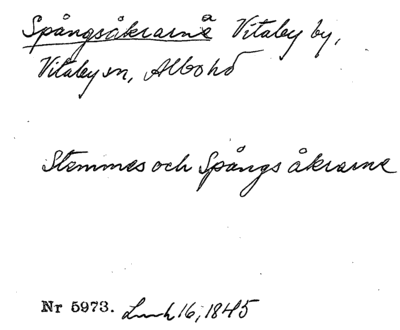 Spångsåkrarne å Vitaby by,
Vitaby sn, Albo hd
Stemmes och Spångs åkrarne
Nr 5973. 16, 1845